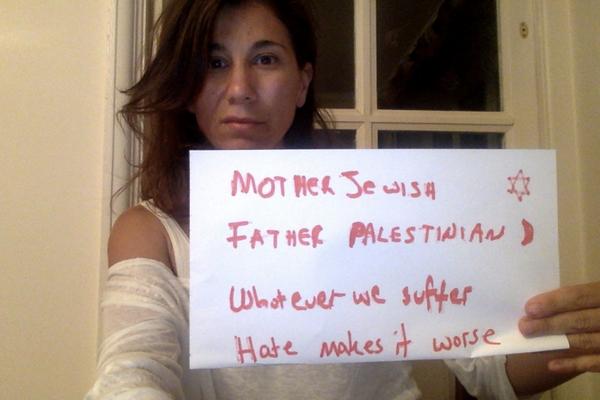 MOTHER JEWISH ✡
FATHER PALESTINIAN ☽
Whatever we suffer
Hate makes it worse